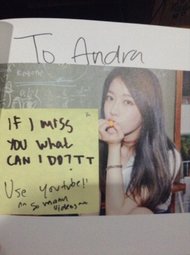 To Andra
IF I MISS
YOU WHAT
CAN I DO?TT
Use Youtube!!
^^ So many
videos ~~